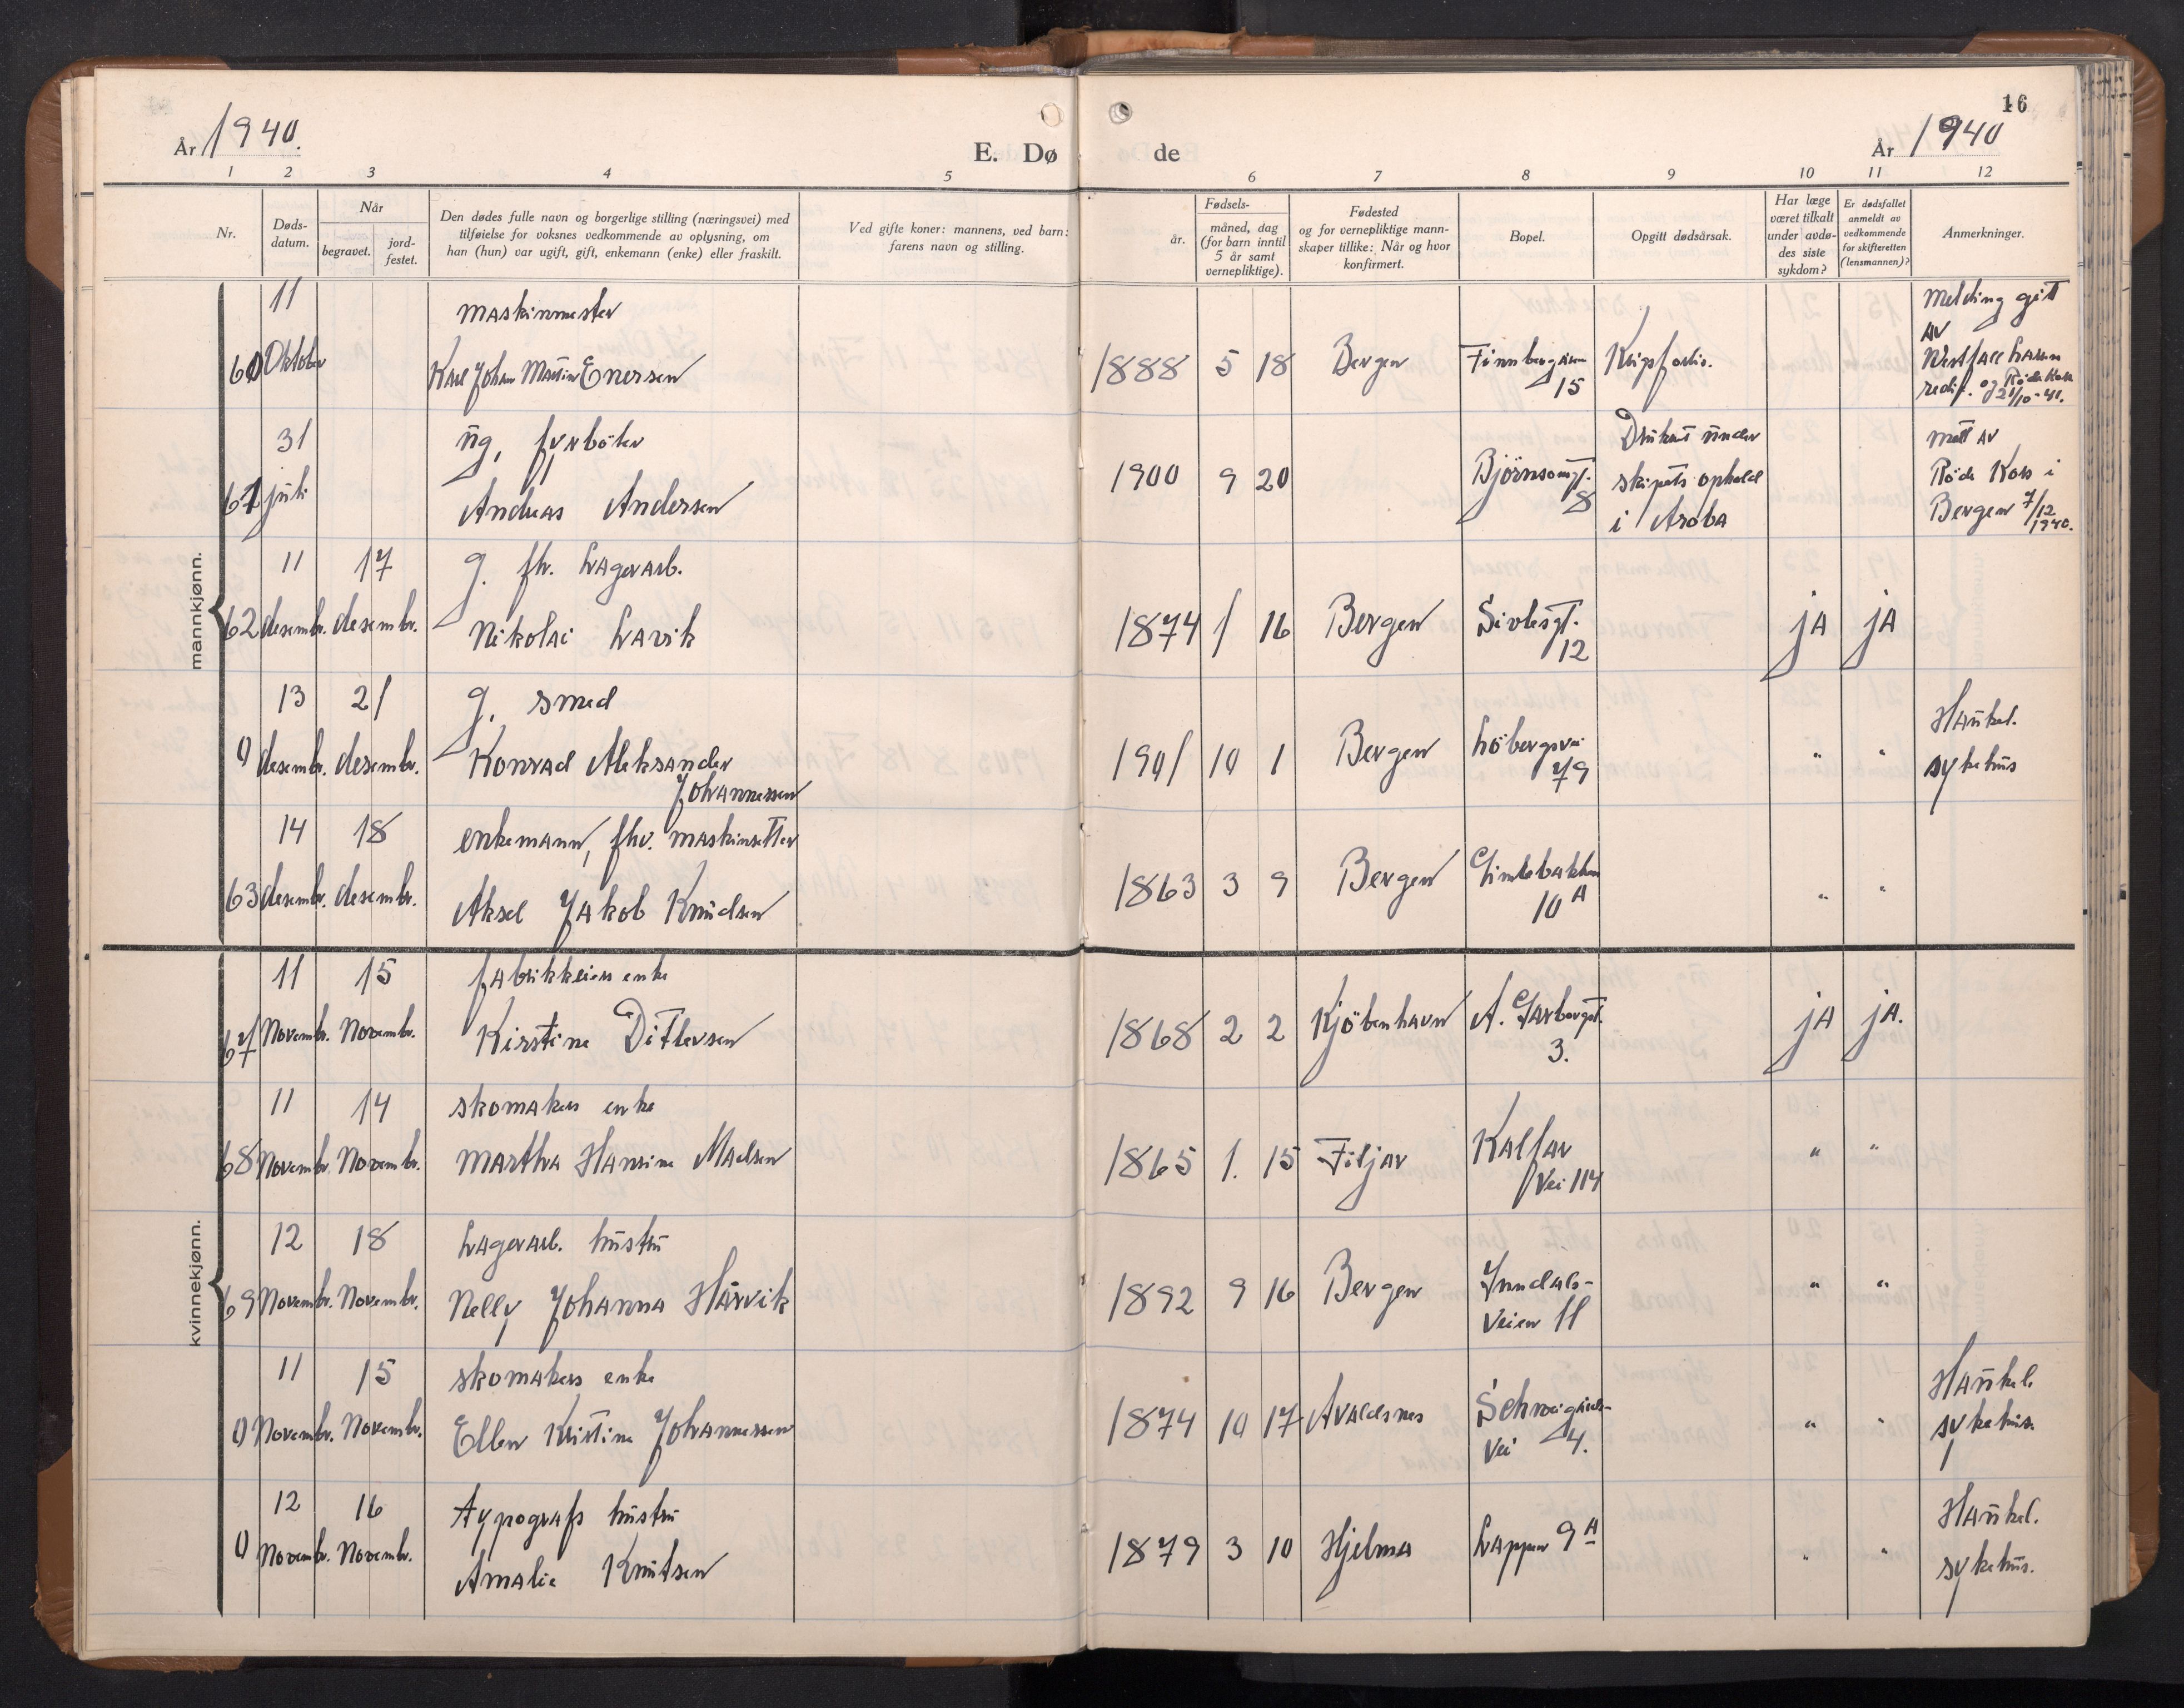 16
År 1940.
E. Dø de
År 1940
1 2 3 4 5 6 7 8 9 10 11 12
Nr.
Døds-
datum.
Når
begravet.
jord-
festet.
Den dødes fulle navn og borgerlige stilling (næringsvei) med
tilføielse for voksnes vedkommende av oplysning, om
han (hun) var ugift, gift, enkemann (enke) eller fraskilt.
Ved gifte koner: mannens, ved barn:
farens navn og stilling.
Fødsels-
år.
måned, dag
(for barn inntil
5 år samt
vernepliktige).
Fødested
og for vernepliktige mann-
skaper tillike: Når og hvor
konfirmert.
Bopel.
Opgitt dødsårsak.
Har læge
været tilkalt
under avdø-
des siste
sykdom?
Er dødsfallet
anmeldt av
vedkommende
for skifteretten
(lensmannen)?
Anmerkninger.
mannkjønn.
11 maskinmester Melding gitt
av
60 Oktober Karl Johan Martin Enersen 1888 5 18 Bergen Finnbergåsen Krigsforlis. Westfall Larsen
15 redri. og Røde Kors
21/10-41.
31 ug. fyrböter Druknet under Mdt av
61 juli Andreas Andersen 1900 9 20 Björnsonsgt. skipets ophold Röde Kors i
8 i Aroba Bergen 7/12
1940.
11 17 g. fh. Lagerarb.
62 desembr. desembr. Nikolai Larvik 1874 1 16 Bergen Sivlesgt. ja ja
12
13 21 g. smed Haukel.
0 desembr. desembr. Konrad Aleksander 1901 10 1 Bergen Löbergsvei " " sykehus
Johannessen 79
14 18 enkemann, fhv. maskinsetter
63 desembr. desembr. Aksel Jakob Knudsen 1863 3 9 Bergen Gimlebakken " "
10 A
kvinnekjønn.
11 15 fabrikkeiers enke
67 Novembr. Novembr. Kirstine Ditlevsen 1868 2 2 Kjöbenhavn A. Garborgsgt. ja ja.
3.
11 14 skomakers enke
68 Novembr. Novembr. Martha Hansine Madsen 1865 1. 15 Fitjar Kalfar " "
Vei 114
12 18 Lagerarb. hustru
69 Novembr. Novembr. Nelly Johanna Hårvik 1892 9 16 Bergen Inndals- " "
Veien 11
11 15 skomakers enke Haukel.
0 Novembr. Novembr. Ellen Kristine Johannessen 1874 10 17 Avaldsnes Schweigårds- " " sykehus.
Vei 4.
12 16 Typografs hustru Haukel.
0 Novembr. Novembr. Amalie Knutsen 1879 3 10 Hjelma Lappen 9 A " " sykehus.